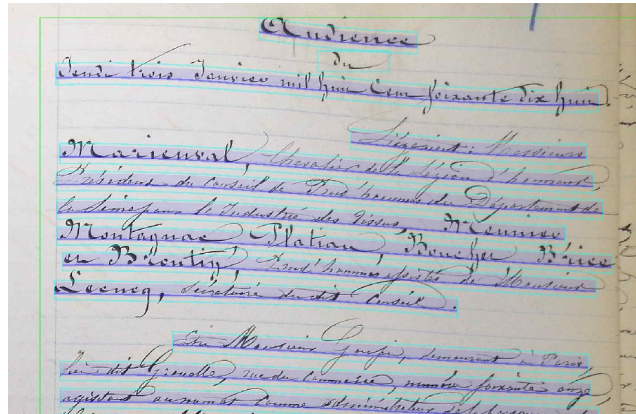 Audience
du
Jeudi trois Janvier mil huit cent soixante dix huit.
Siégeaient: Messieurs
Marienval, Chevalier de la Légion d'honneur,
Président du Conseil de Prud'hommes du Département de
la Seine pour l'Industrie des Tissus, Meunier
Montagnac Platiau, Boucher Brice
et Brentiy, Prud'hommes assistés de Monsieur
Lecucq, Secrétaire du dit Conseil.
Entre Monsieur demeurant à Paris,
dit Grenelle, rue du Commerce, numéro soixante onze
agissant au nom et comme administrateur